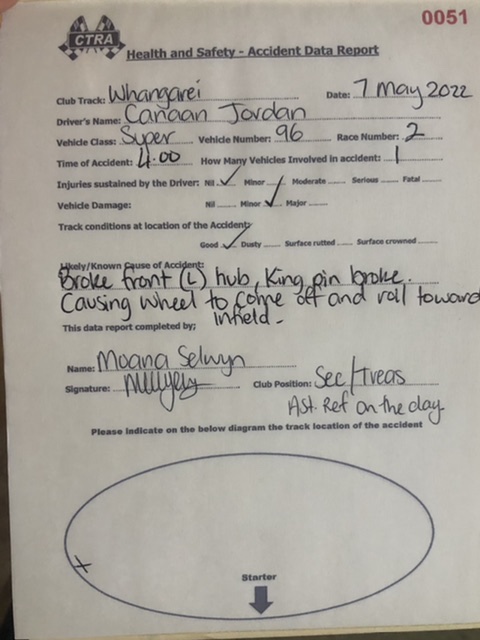 0051
CTRA
Health and Safety - Accident Data Report
Club Track: Whangarei Date: 7 May 2022
Driver's Name: Canaan Jordan
Vehicle Class: Super Vehicle Number: 96 Race Number: 2
Time of Accident: 4.00 How Many Vehicles Involved in accident: 1
Injuries sustained by the Driver: Nil ✓ Minor Moderate Serious Fatal
Vehicle Damage: Nil Minor ✓ Major
Track conditions at location of the Accident:
Good ✓ Dusty Surface rutted Surface crowned
Likely/Known Cause of Accident:
Broke front (L) hub, King pin broke.
Causing wheel to come off and roll toward
infield.
This data report completed by;
Name: Moana Selwyn
Signature: Club Position: Sec/Treas
Ast. Ref on the day
Please indicate on the below diagram the track location of the accident
X
Starter